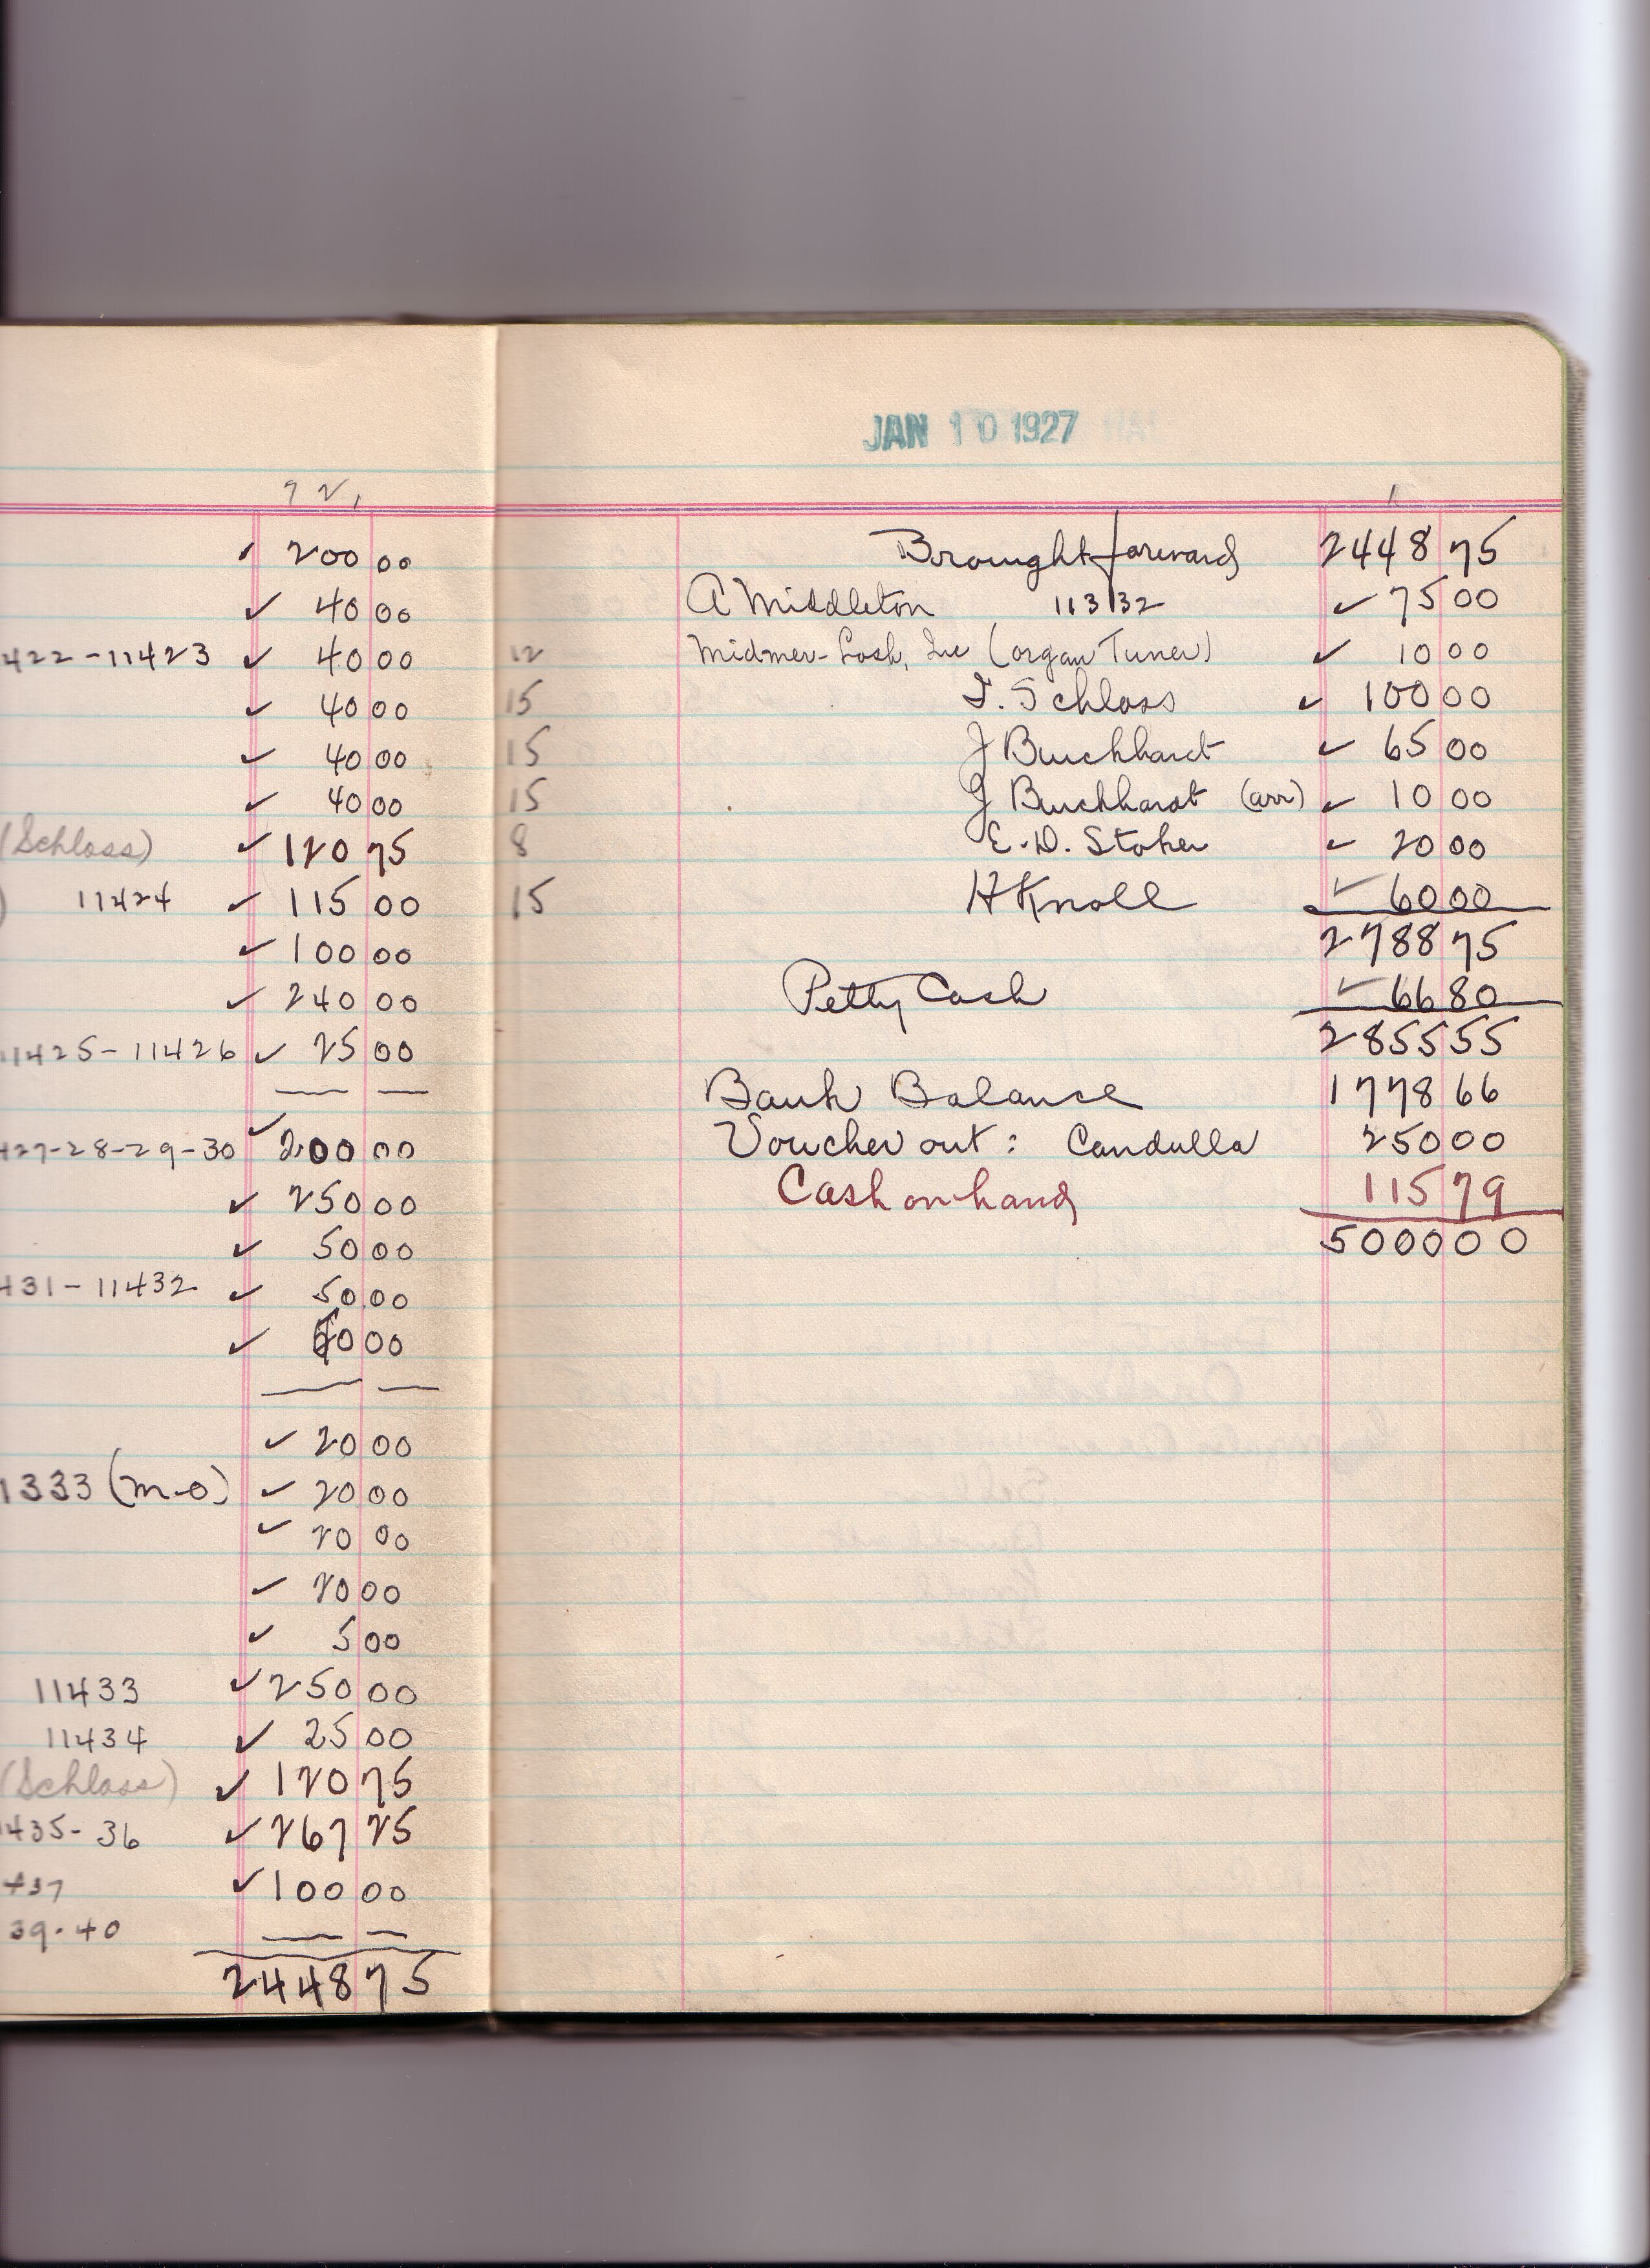 7 2,
200 00
40 00
422-11423 40 00
40 00
40 00
40 00
(Schloss) 120 75
11424 115 00
100 00
240 00
11425-11426 25 00
427-28-29-30 200 00
250 00
50 00
431-11432 50 00
00
20 00
1333 (m-o) 20 00
20 00
20 00
5 00
11433 250 00
11434 25 00
(Schloss) 120 75
435-36 267 25
437 100 00
39-40
2448 75
JAN 10 1927
Brought forward 2448 75
A Middleton 11332 75 00
12 Midmer-Losh, Inc (organ Tuner) 10 00
15 S. Schloss 100 00
15 J Burkhardt 65 00
15 J Burkhardt (arr) 10 00
8 E.D. Stoker 20 00
15 H Knoll 60 00
2788 75
Petty Cash 66 80
2855 55
Bank Balance 1778 66
Voucher out: Candulla 250 00
Cash on hand 115 79
5000 00